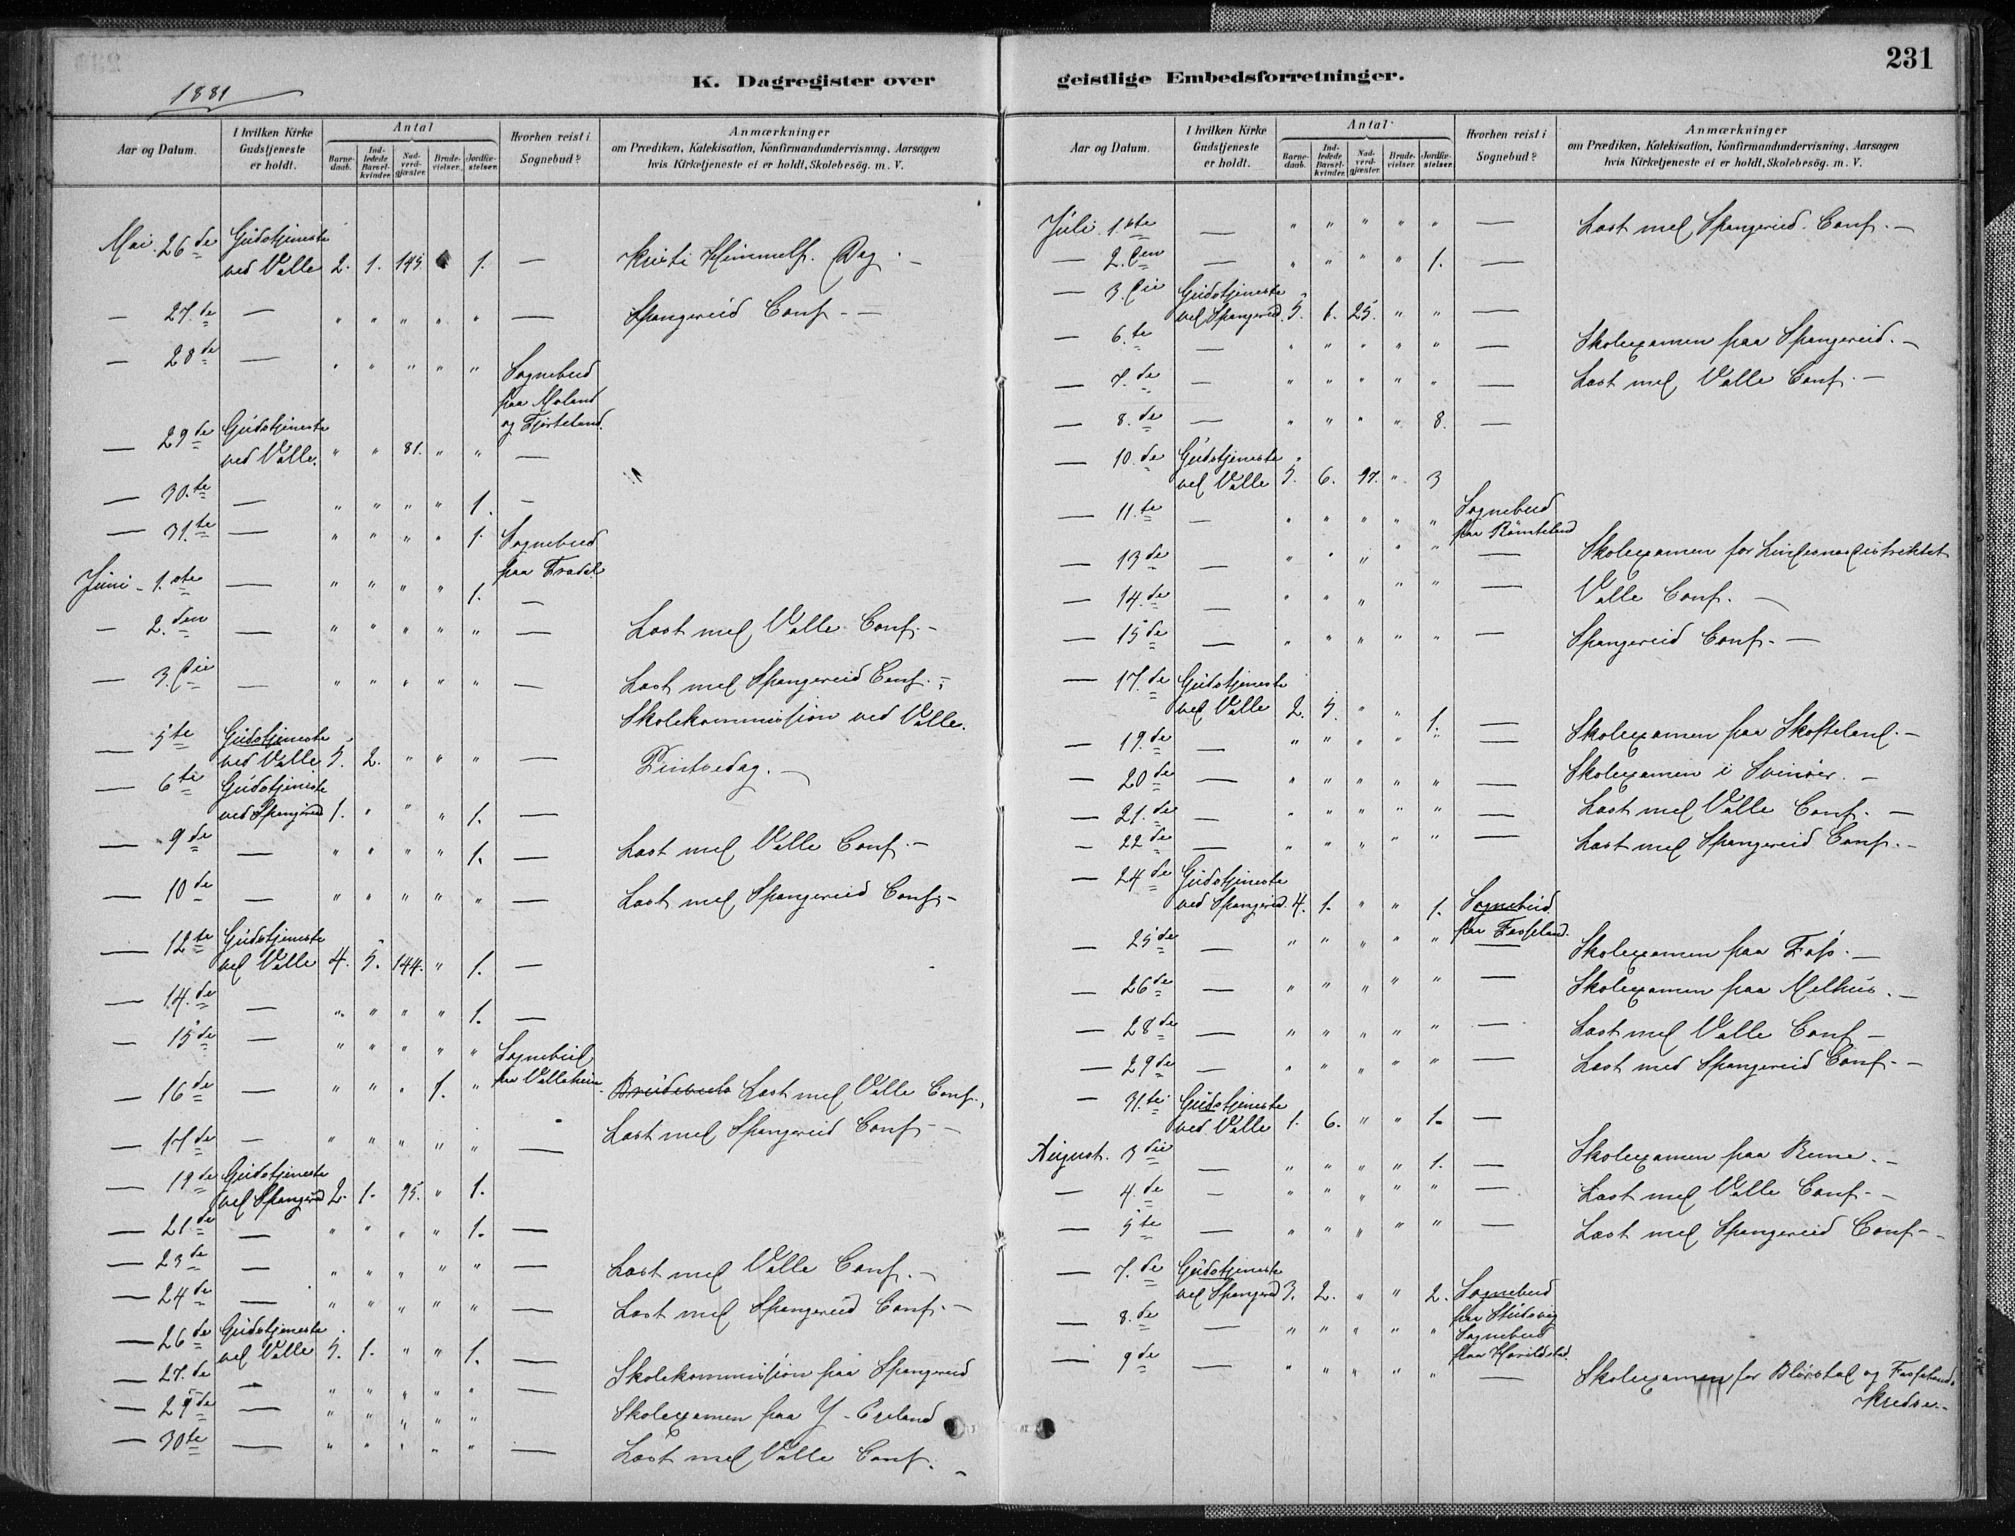 1881
K. Dagregister over
Antal
Aar og Datum.
I hvilken Kirke Gudstjeneste er holdt.
Barnedaab.
Indledede Barselkvinder.
Nadverdgjæster.
Brudevielser.
Jordfæstelser.
Hvorhen reist i Sognebud?
Anmærkninger
om Prædiken, Katekisation, Konfirmandundervisning. Aarsagen
hvis Kirketjeneste ei er holdt, Skolebesög. m. V.
Mai. 26de Gudstjeneste
ved Valle 2. 1. 145 1. — Kristi Himmelf. Dag. —
— 27.de — " " " " " — Spangereid Conf. —
— 28de — " " " " " Sognebud
paa Moland
og Fjorteland.
— 29de Gudstjeneste
ved Valle. " " 81. " " —
— 30.te — " " " " 1. —
— 31.te — " " " " 1. Sognebud
paa
Juni. 1.ste — " " " " 1. —
— 2.den — " " " " " — Læst med Valle Conf. —
— 3.die — " " " " " — Læst med Spangereid Conf. —;
Skolekommission ved Valle.
— 5te Gudstjeneste
ved Valle 5. 2. " " " — Pintsedag. —
— 6te Gudstjeneste
ved Spangereid 1. " " " 1. —
— 9de — " " " " 1. — Læst med Valle Conf. —
— 10de — " " " " " — Læst med Spangereid Conf. —
— 12te Gudstjeneste
ved Valle 4. 5. 144. " 1. —
— 14.de — " " " " 1. —
— 15de — " " " " " Sognebud
paa Valleheia
— 16de — " " " 1. " Læst med Valle Conf.
— 17de — " " " " " — Læst med Spangereid Conf. —
— 19de Gudstjeneste
ved Spangereid 2. 1. 95. " 1.
— 21de — " " " " 1. —
— 23de — " " " " " — Læst med Valle Conf. —
— 24de — " " " " " — Læst med Spangereid Conf. —
— 26de Gudstjeneste
ved Valle 5. 1. " " 1. —
— 27.de — " " " " " — Skolekommission paa Spangereid
— 29de — " " " " " Skoleexamen paa Y-
— 30te — " " " " " — Læst med Valle Conf. —
231
geistlige Embedsforretninger.
Antal
Aar og Datum.
I hvilken Kirke Gudstjeneste er holdt.
Barnedaab.
Indledede Barselkvinder.
Nadverdgjæster.
Brudevielser.
Jordfæstelser.
Hvorhen reist i Sognebud?
Anmærkninger
om Prædiken, Katekisation, Konfirmandundervisning. Aarsagen
hvis Kirketjeneste ei er holdt, Skolebesög. m. V.
Juli. 1.ste — " " " " " — Læst med Spangereid Conf. —
— 2.den — " " " " 1. —
— 3.die Gudstjeneste
ved Spangereid. 5. 6. 25. " " —
— 6.te — " " " " " — Skoleexamen paa Spangereid. —
— 7.de — " " " " " — Læst med Valle Conf. —
— 8.de — " " " " 8. —
— 10.de Gudstjeneste
ved Valle 5. 6. 97. " 3
— 11.te — " " " " " Sognebud
paa
— 13de — " " " " " — Skoleexamen for Lindesnæs Distriktet
— 14.de — " " " " " — Valle Conf. —
— 15de — " " " " " — Spangereid Conf. —
— 17.de Gudstjeneste
ved Valle 2. 5. " " 1. —
— 19.de — " " " " " — Skoleexamen paa Skofteland. —
— 20de — " " " " " — Skoleexamen i Svinöer. —
— 21.de — " " " " " — Læst med Valle Conf. —
— 22de — " " " " " — Læst med Spangereid Conf. —
— 24de Gudstjeneste
ved Spangereid. 4. 1. " " 1. Sognebud
paa Fasseland.
— 25de — " " " " " — Skoleexamen paa Fasö. —
— 26de — " " " " " — Skoleexamen paa Melhus. —
— 28de — " " " " " — Læst med Valle Conf —
— 29de — " " " " " — Læst med Spangereid Conf. —
— 31.te Gudstjeneste
ved Valle 1. 6. " " 1. —
August. 3die — " " " " 1. — Skoleexamen paa Reme. —
— 4.de — " " " " " — Læst med Valle Conf. —
— 5te — " " " " " — Læst med Spangereid Conf. —
— 7.de Gudstjeneste
ved Spangereid 3. 2. " " 2. Sognebud
paa Stusvig
— 8.de — " " " " " Sognebud
paa
— 9de " " " " " — Skoleexamen for og Fasselands
Kredse. —